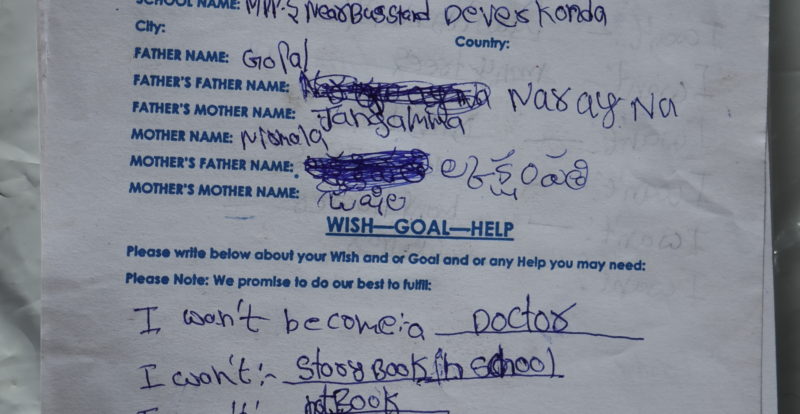 SCHOOL NAME: MPP.S Near Bus Stand Deverkonda
City: Country:
FATHER NAME: Gopal
FATHER'S FATHER NAME: Narayna
FATHER'S MOTHER NAME: Jangamma
MOTHER NAME:
MOTHER'S FATHER NAME:
MOTHER'S MOTHER NAME:
WISH—GOAL—HELP
Please write below about your Wish and or Goal and or any Help you may need:
Please Note: We promise to do our best to fulfill:
I won't become:a Doctor
I won't:- Story Book in school
Book